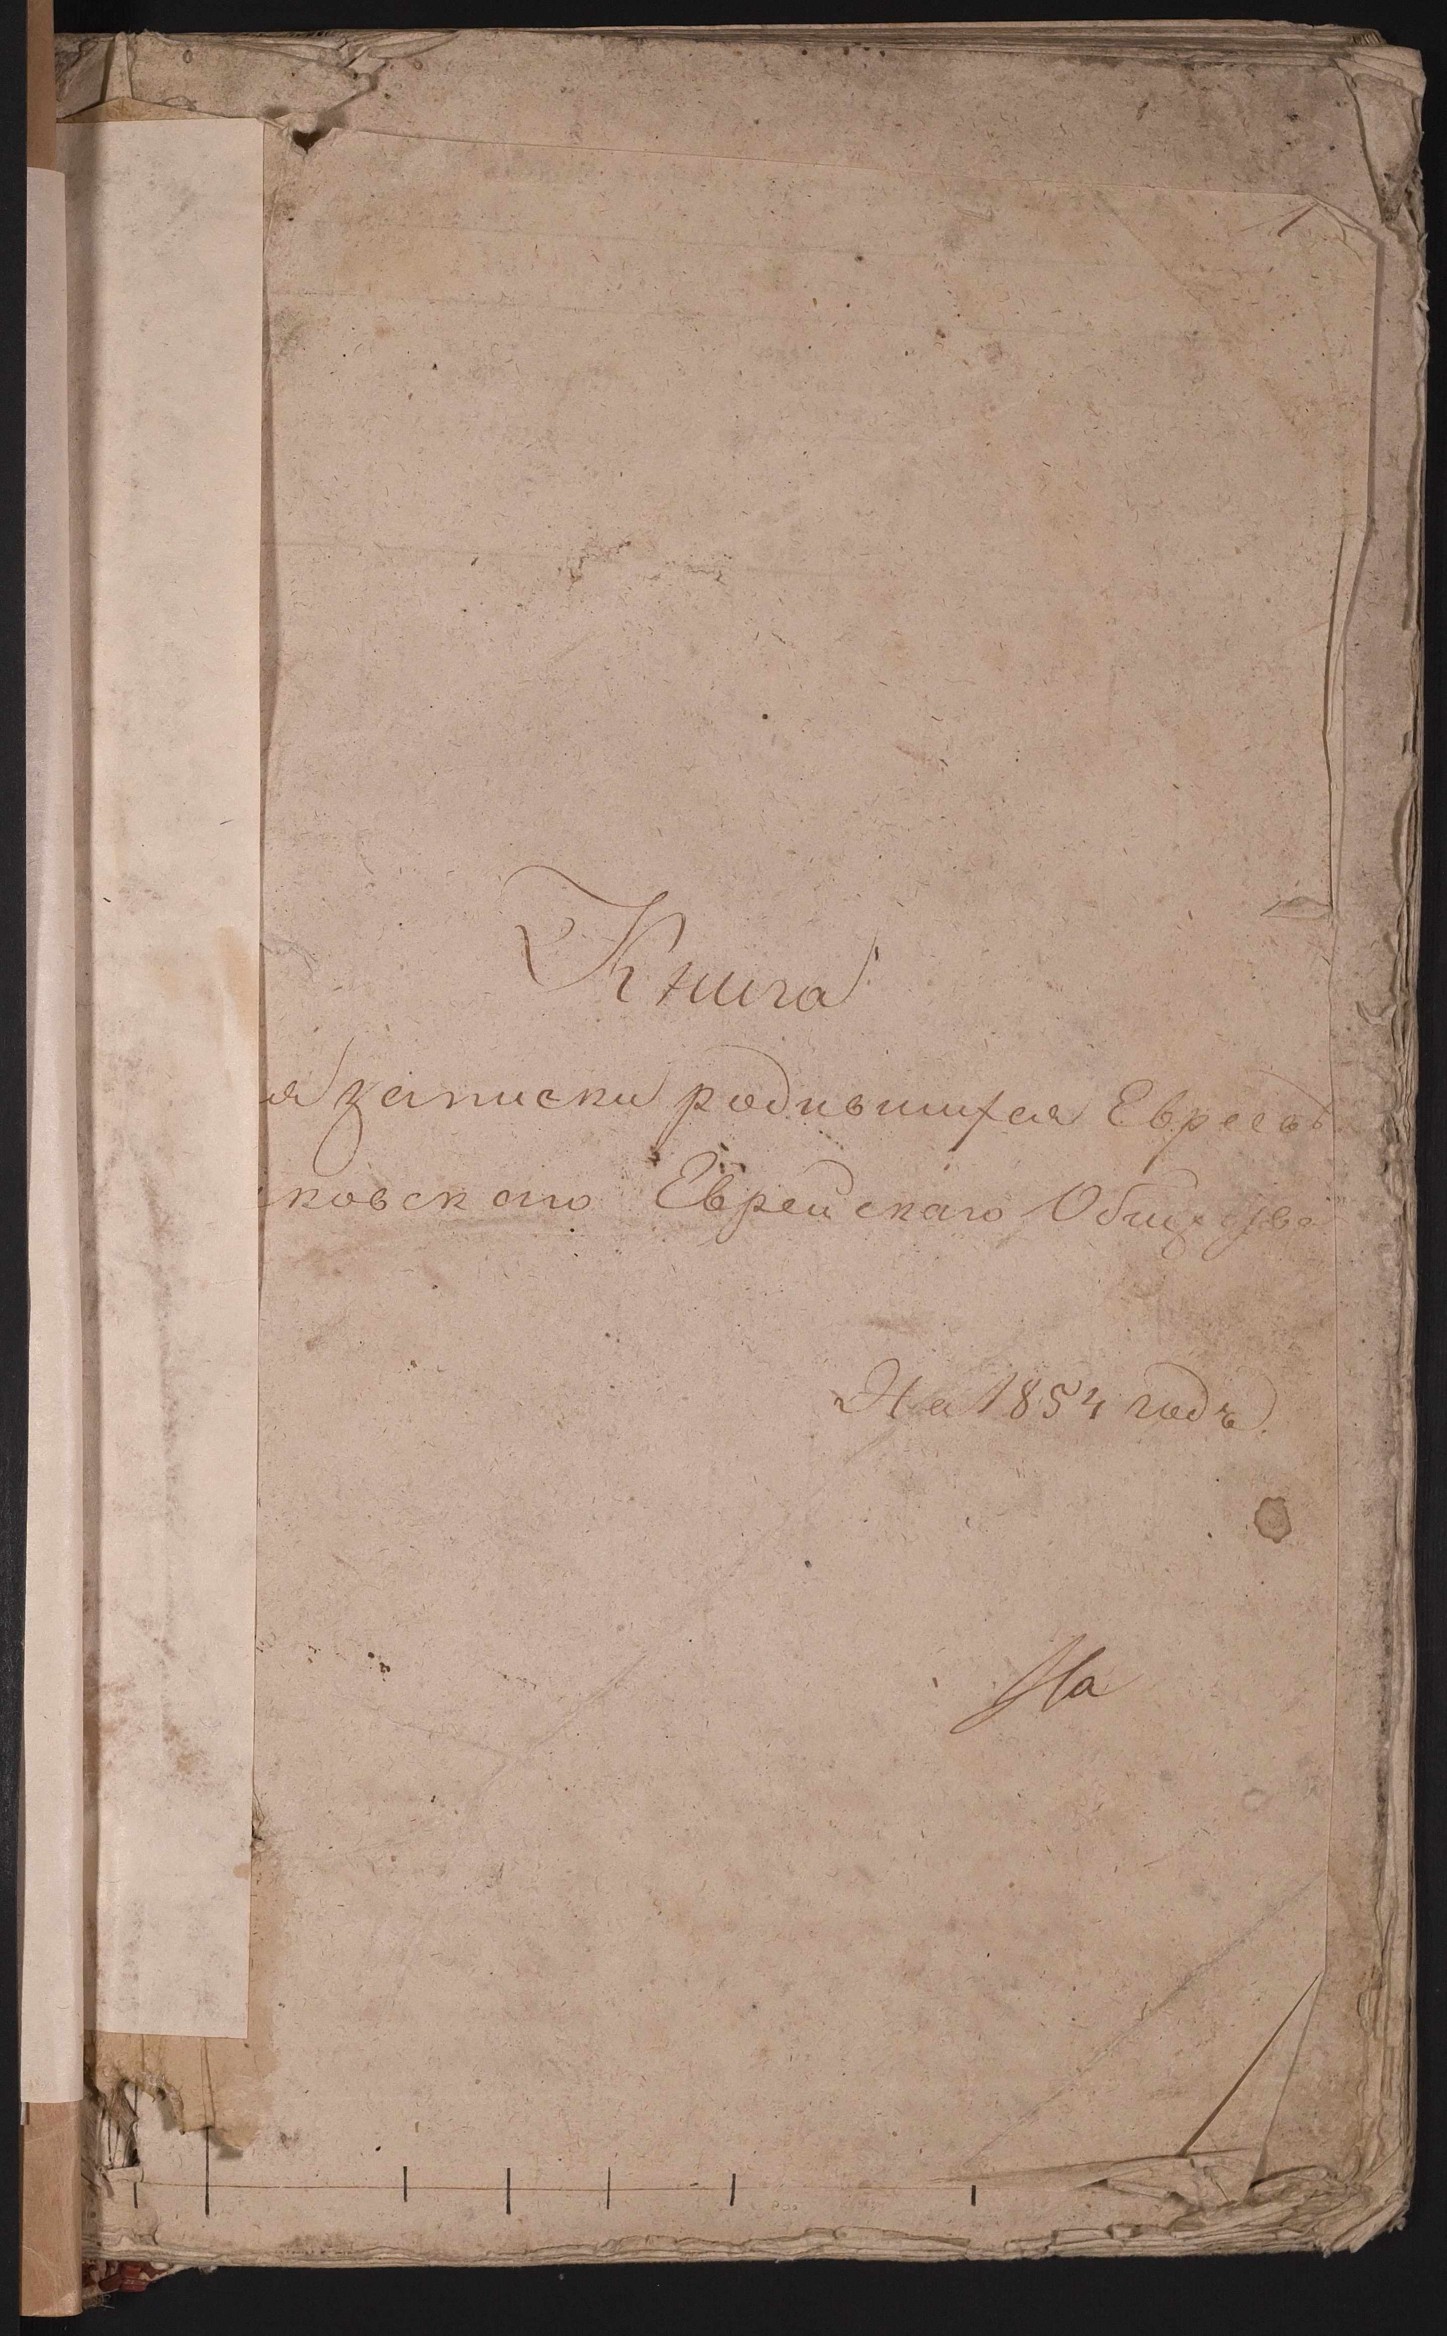 Книга
я записки родившихся Евреевъ
ковскаго Еврейскаго Общества
На 1854 годъ
На